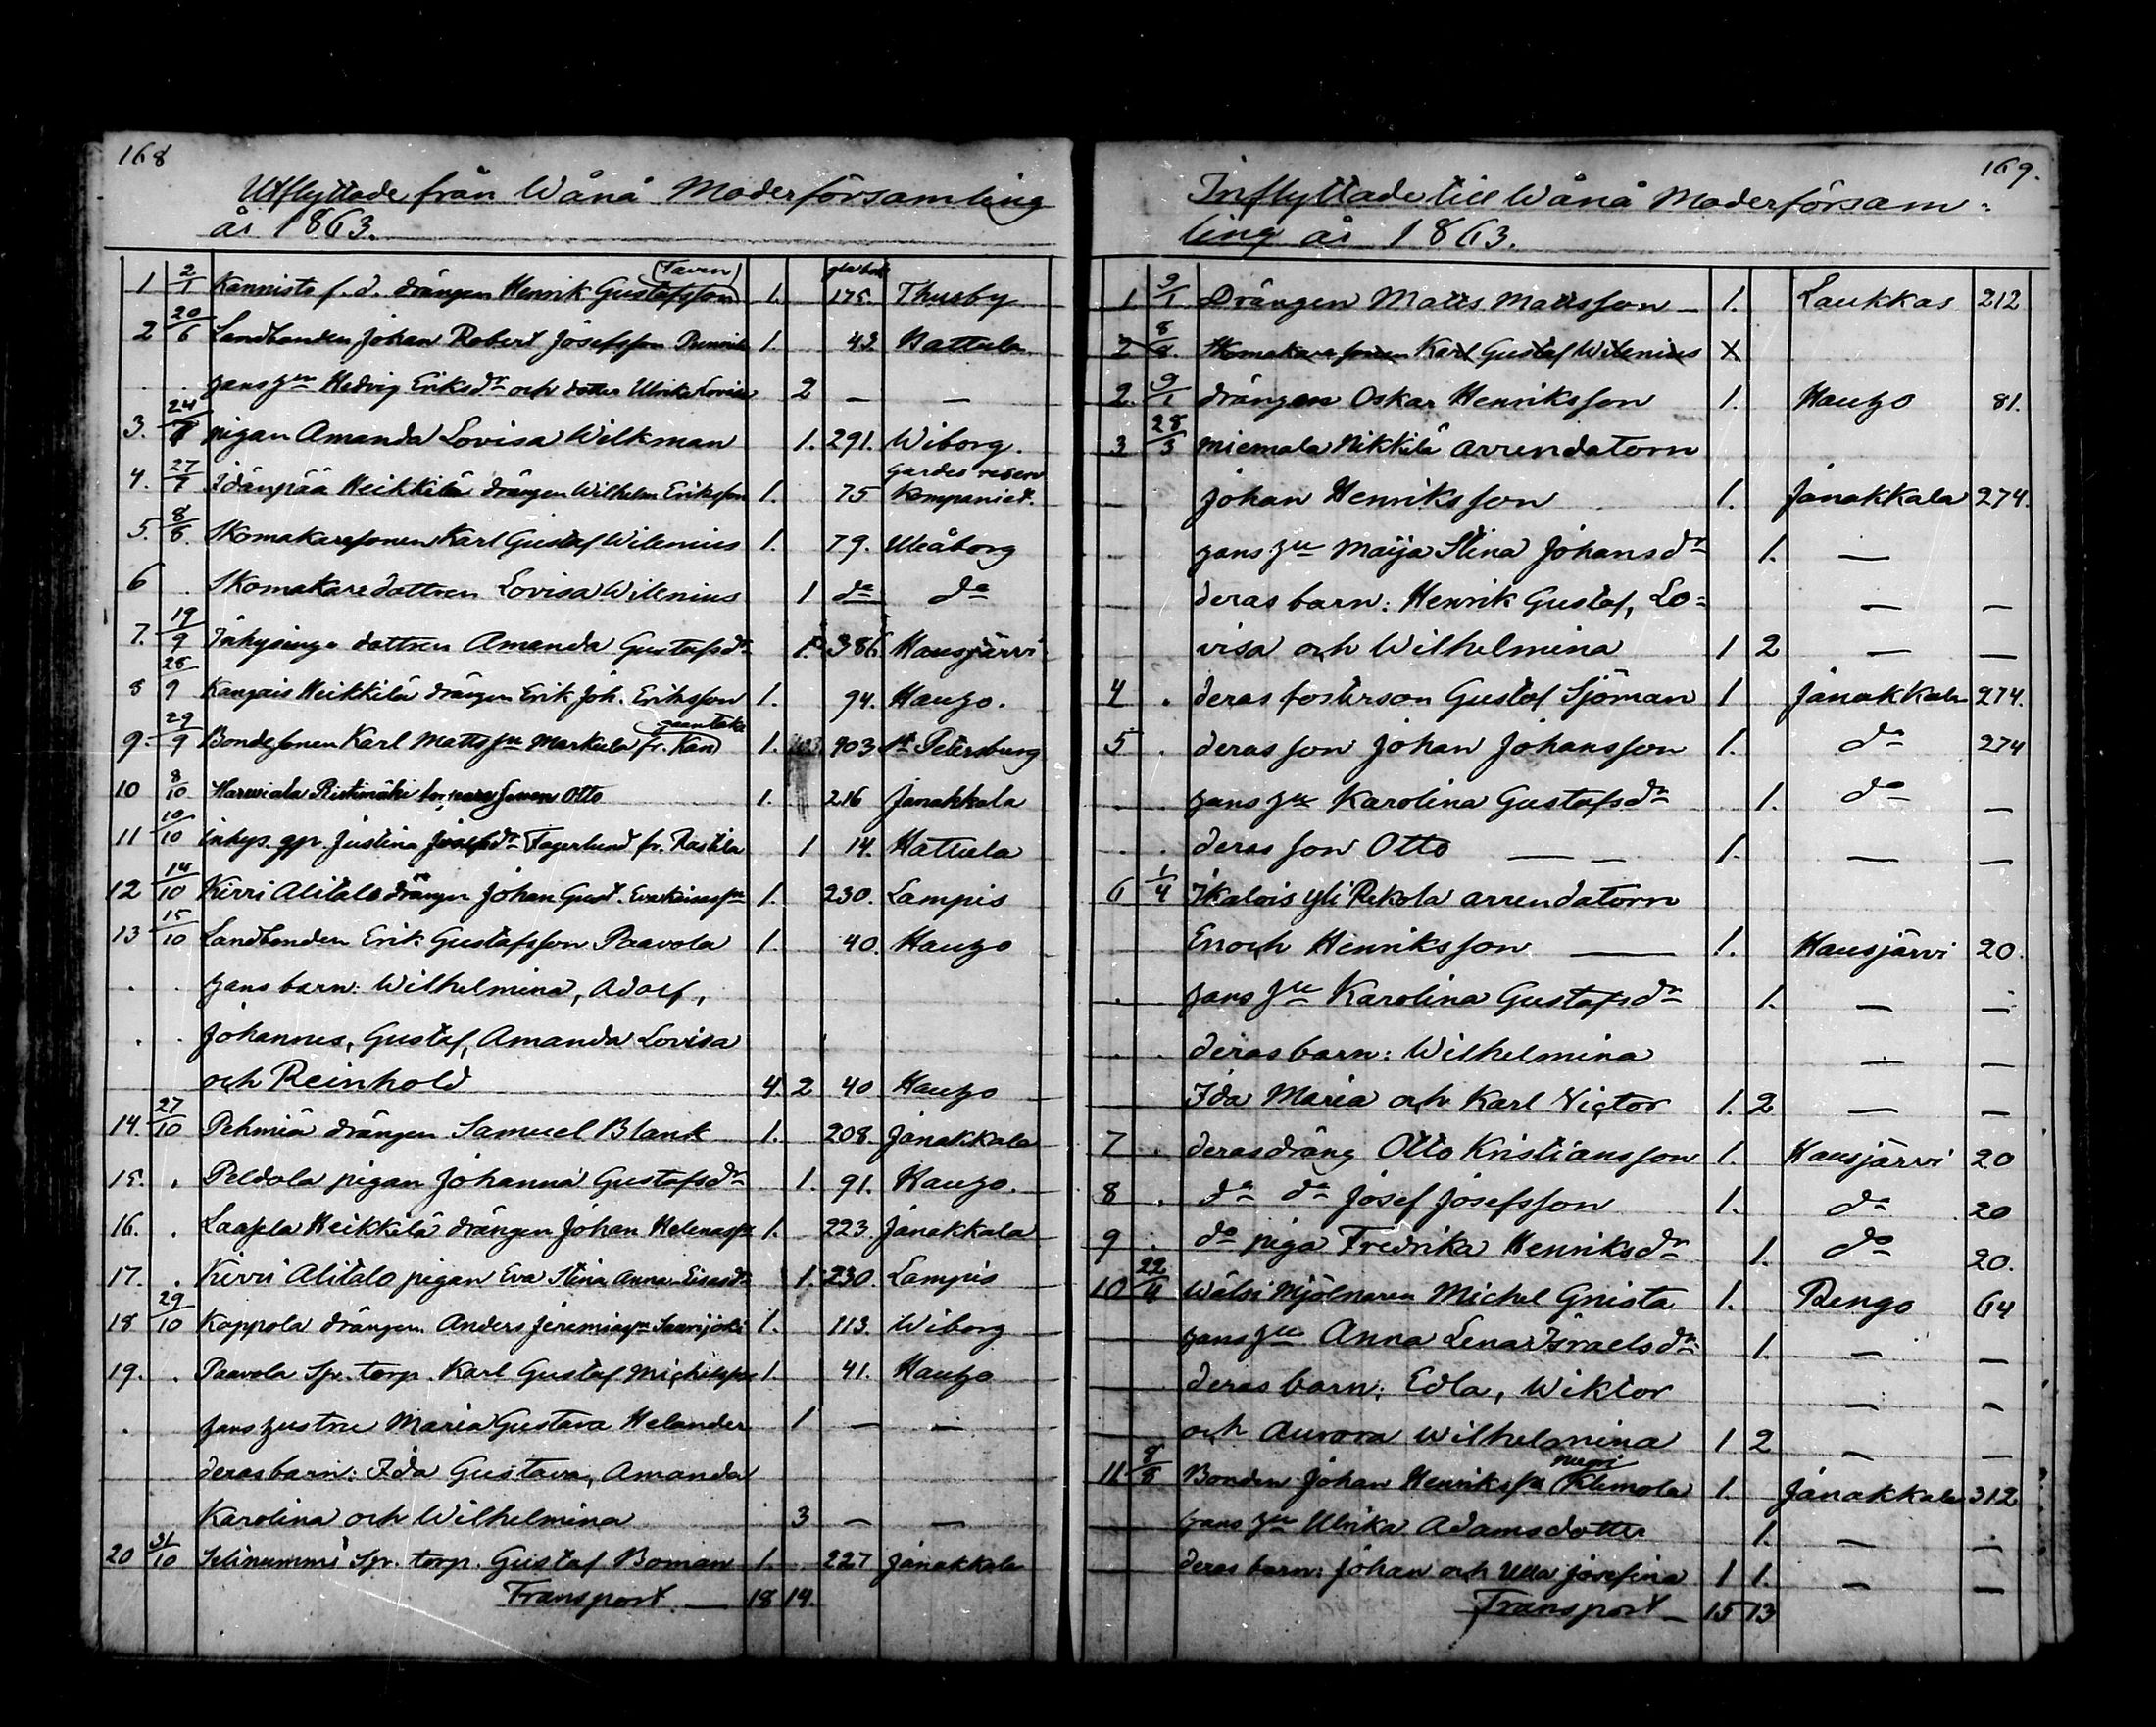 168
Utflyttade från Wånå Moderförsamling
år 1863.
(Taven)
gla bok
1 2/1 Kannisto f. d. drängen Henrik Gustafsson 1. 175. Thusby
2 20/6 Landbonden Johan Robert Josefsson 1. 43 Hattula
hans hu Hedvig Eriksdr och dotter Ulrika Lovisa 2 — —
3. 24/7 pigan Amanda Lovisa Wilkman 1. 291. Wiborg.
gardes reserv
4. 27/7 Idänpää Heikkilä drängen Wilhelm Eriksson 1. 75 kompaniet.
5. 8/8. Skomakaresonen Karl Gustaf Wilenius 1. 79. Uleåborg
6 . Skomakaredottren Lovisa Wilenius 1 do do
7. 19/9 Inhysings dottren Amanda Gustafsdr 1. 386 Hausjärvi
8 28/9 Kangais Heikkilä drängen Erik Joh. Eriksson 1. 94. Hauho.
9. 29/9 Bondesonen Karl Mattssn Markula fr. Kan 1. 903 St Petersburg
10 8/10 Harviala Ristimäki torparesonen Otto 1. 216 Janakkala
11 10/10 inhys. gp. Justina Josefsdr Fagerlund fr. Rastila 1 14. Hattula
12 14/10 Kirri Alitalo drängen Johan Gust. Evakaisassn 1. 230. Lampis
13 15/10 Landbonden Erik Gustafsson Paavola 1. 40. Hauho
. . hans barn: Wilhelmina, Adolf,
. . Johannes, Gustaf, Amanda Lovisa
och Reinhold 4. 2 40 Hauho
14. 27/10 Pehmiä drängen Samuel Blank 1. 208. Janakkala
15. . Peldola pigan Johanna Gustafsdr 1. 91. Hauho.
16. . Laapla Heikkilä drängen Johan Helenassn 1. 223. Janakkala
17. . Kirri Alitalo pigan Eva Stina Anna-Lisasdr 1 230. Lampis
18 29/10 Kappola drängen Anders Jeremiassn Saarijoki 1. 113. Wiborg
19. . Paavola Spr. torp. Karl Gustaf Michelsson 1. 41. Hauho
. hans hustru Maria Gustava Helander 1 — —
deras barn: Ida Gustava, Amanda
Karolina och Wilhelmina 3 — —
20 31/10 Selinummi Spr. torp. Gustaf Boman 1. 227 Janakkala
Transport — 18 14.
169.
Inflyttade till Wånå Moderförsam-
ling år 1863.
1 9/1 Drängen Matts Mattsson — 1. Laukkas 212
2 8/8. Skomakaresonen Karl Gustaf Wilenius X
2. 9/1 drängen Oskar Henriksson 1. Hauho 81.
3 28/3 Miemala Nikkilä arrendatorn
— Johan Henriksson 1. Janakkala 274.
— hans hu Maija Stina Johansdr 1. —
— deras barn: Henrik Gustaf, Lo- — —
visa och Wilhelmina 1 2 — —
4 . deras fosterson Gustaf Sjöman 1 Janakkala 274.
5 . deras son Johan Johansson 1. do 274
hans hu Karolina Gustafsdr 1. do —
. . deras son Otto — — 1. — —
6 1/4 Ikalois Yli Rekola arrendatorn
Enoch Henriksson — 1. Hausjärvi 20.
. hans hu Karolina Gustafsdr 1. — —
. . deras barn: Wilhelmina — —
Ida Maria och Karl Victor 1. 2 — —
7 . deras dräng Otto Kristiansson 1. Hausjärvi 20
8 . do do Josef Josefsson 1. do 20
9 . do piga Fredrika Henriksdr 1. do 20.
10 22/4 Wälsi Mjölnaren Michel Gnista 1. Rengo 64
hans hu Anna Lena Israelsdr 1. — —
deras barn: Edla, Wiktor — —
och Aurora Wilhelmina 1 2 — —
11 8/8 Bonden Johan Henrikssn Klemola 1. Janakkala 312
hans hu Ulrika Adamsdotter 1. — —
deras barn: Johan och Ulla Josefina 1 1. — —
Transport — 15 13